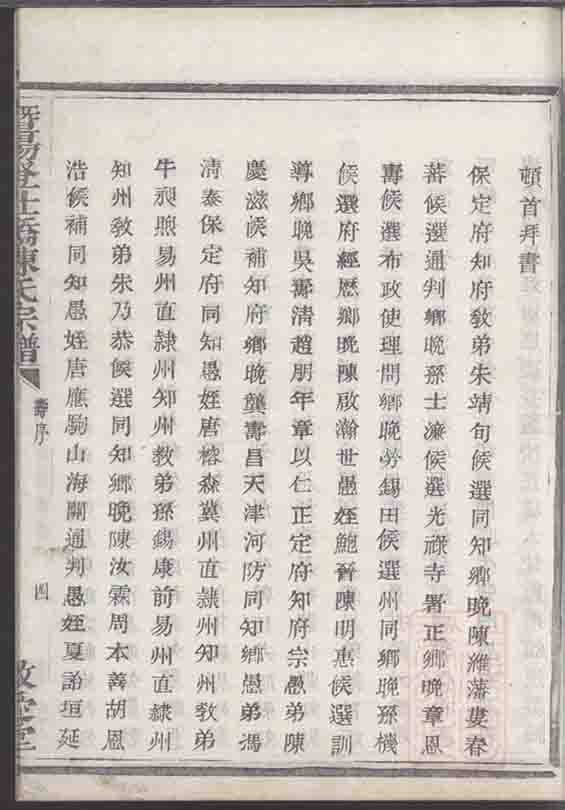 頓首拜書
保定府知府教弟朱靖旬候選同知鄉晚陳濰藩婁春
蕃候選通判鄉晚孫士濂候選光祿寺署正鄉晚章恩
壽候選布政使理問鄉晚勞錫田候選州同鄉晚孫機
候選府經歷鄉晚陳啟瀚世愚姪鮑晉陳明惠候選訓
導鄉晚吳壽清趙朋年章以仁正定府知府宗愚弟陳
慶滋候補知府鄉晚龔壽昌天津河防同知鄉愚弟馮
清泰保定府同知愚姪唐榕森冀州直隸州知州教弟
牛昶煦易州直隸州知州教弟孫錫康前易州直隸州
知州教弟朱乃恭候選同知鄉晚陳汝霖周本善胡恩
浩候補同知愚姪唐應駒山海關通判愚姪夏詒垣延
暨陽 陳氏宗譜
壽序
四